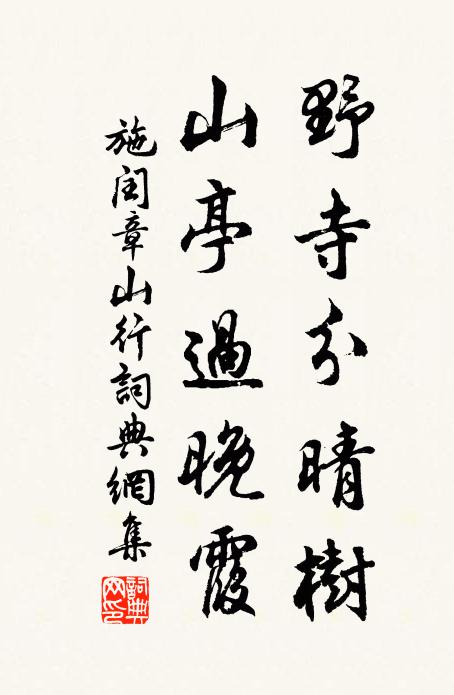 野寺分晴樹
山亭過晚霞
施閏章山行詞典網集
詞典网印